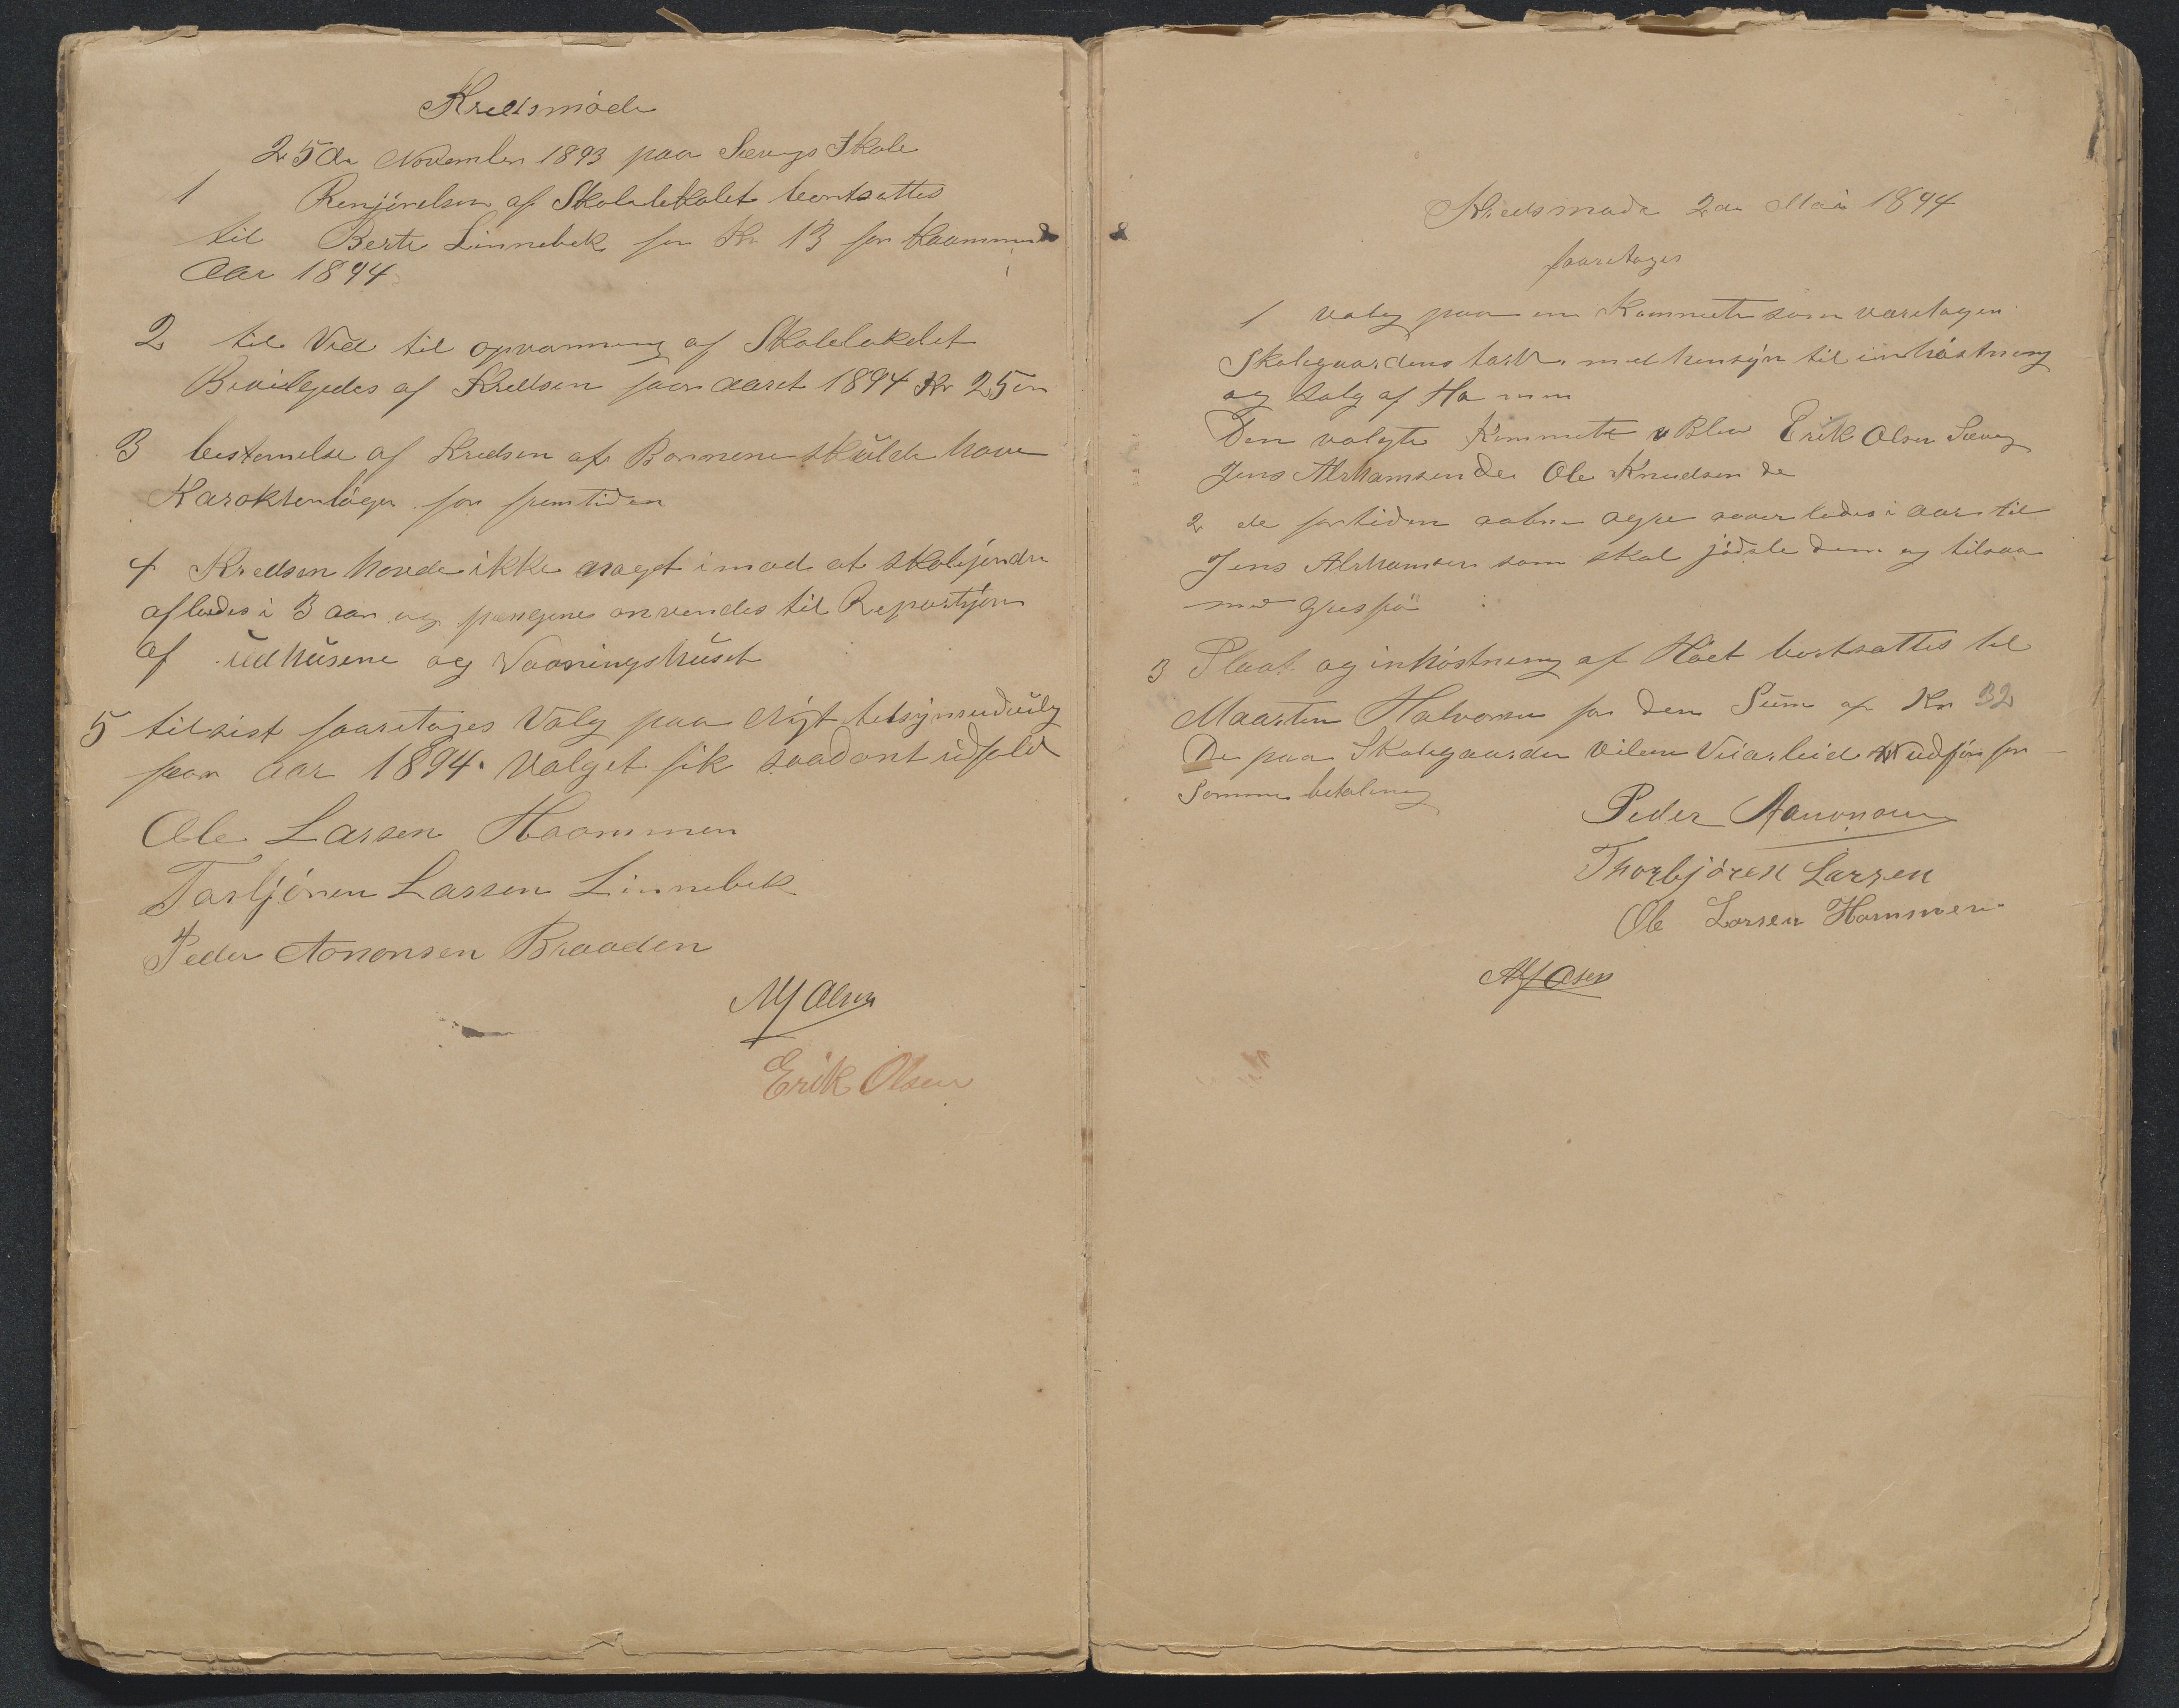 Kredsmöde
25de November 1893 paa Sævigs Skole
1 Renjörelsen af Skolelokalet bortsattes
til Berte Linnebek for Kr 13 for kaammende
Aar 1894
2 til Ved til opvarming af Skolelokelet
Bevilgedes af Kredsen faar aaret 1894 Kr 25
3 bestemelse af Kredsen af Børnene skülde have
Karakterbøger for fremtiden
4 Kredsen havde ikke naaget imod at skolejordn
afledes i 3 aar og pængene anvendes til Repartsjon
af üdhüsene og Vaaningshüset
5 tilsist faaretages Valg paa Nyt tilsynsudvalg
faar Aar 1894. Valget fik saadant üdfald
Ole Larsen Haammen
Tarbjören Larsen Linnebek
Peder Aanonsen Braaden
Alf Olsen
Erik Olsen
Kredsmøde 2de Mai 1894
faaretages
1 valg paa en Kommete som varetagen
Skolegaardens tarv med hensyn til inhøstning
og Salg af
Den valgte Kommete Blev Erik Olsen Sævig
Jens Abrhamsen de Ole Knudsen de
2 de fortiden aabne agre aaverlades i aar til
Jens Abrhamsen som skal jødsle dem og tilsaa
med Gresfrö
3 Slaat og inhöstning af Höet bortsattes til
Maarten Halvorsen for den Süm af Kr 32
De paa Skolegaarden Veiarbeid udføre for
Somme betaling
Peder Aanonsen
Thorbjören Larsen
Ole Larsen Hammen
Alf Olsen